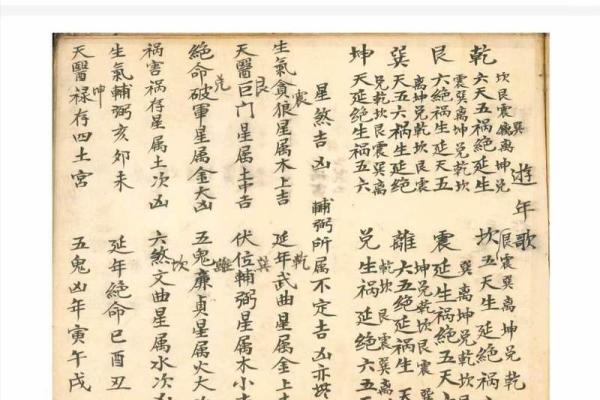 遊年歌
乾 坎艮震巽離坤兌
六天五祸絶延生
坎 艮震巽离坤兌乾
五天生延絶祸六
艮 震巽离坤兌乾坎
六絶祸生延天五
震 巽离坤兌乾坎艮
延生祸絶五天
巽 离坤兌乾坎艮震
天五六祸生延絶
離 坤兌乾坎艮震巽
六五絶延祸生天
坤 兌乾坎艮震巽离
天延絶生祸五六
兌 乾坎艮震巽
生祸延絶六五
星煞吉凶 輔弼所属不定吉凶亦
震 乾
生氣貪狼星属木上吉 延年武曲星属金上
艮 巽
天醫巨门星属土中吉 伏位輔弼星属木小
兌 離
絶命破軍星属金大凶 五鬼廉貞星属火大
坎
祸害祸存星属土次凶 六煞文曲星属水次凶
生氣輔弼亥夘未 延年絶命巳酉丑
坤
天醫禄存四土宮 五鬼凶年寅午戌